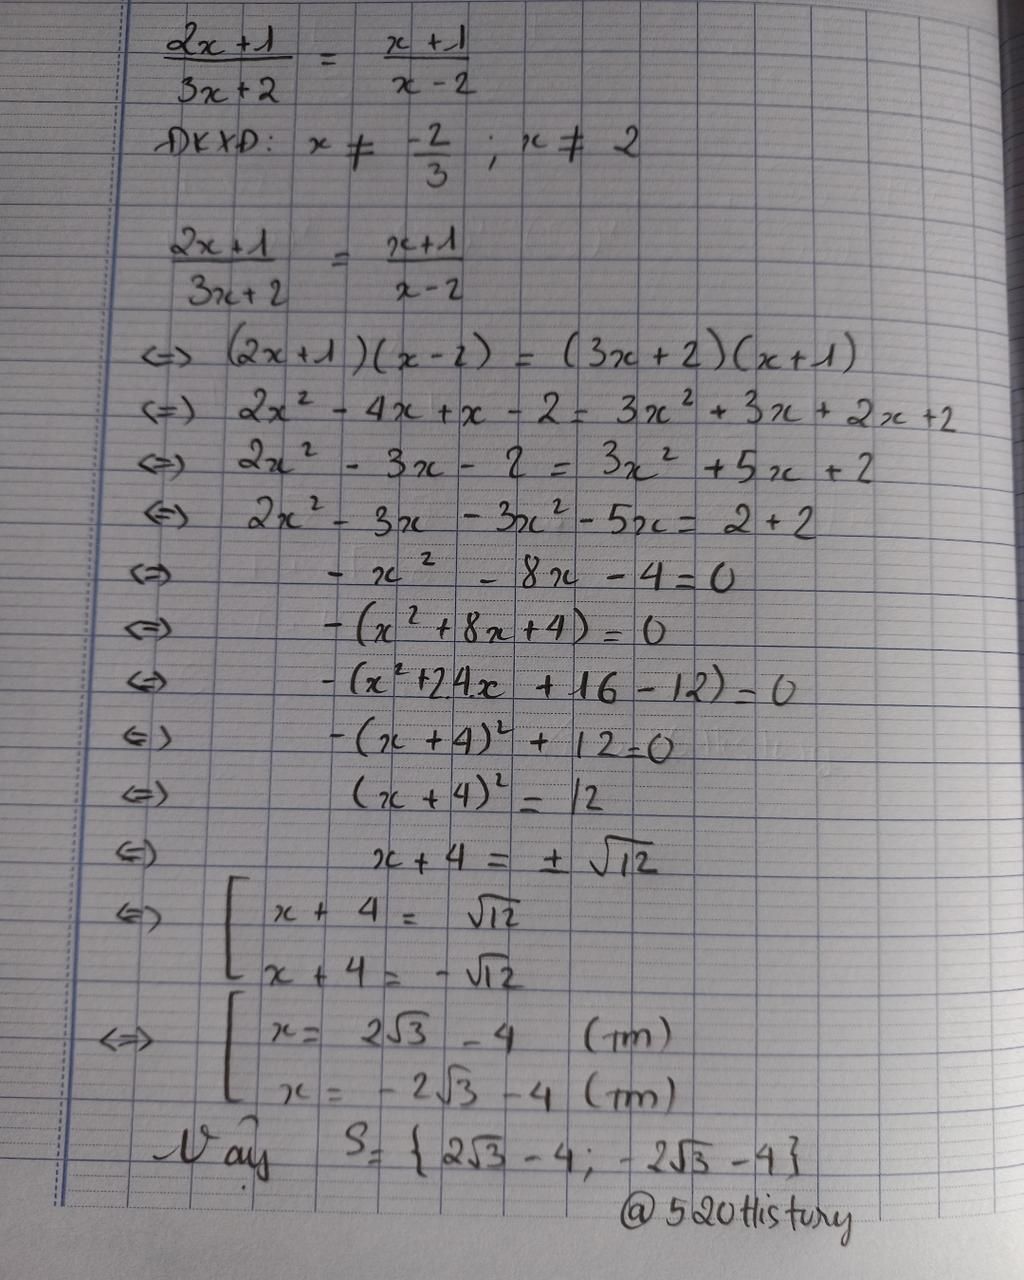 (2x+1)/(3x+2) = (x+1)/(x-2)
ĐKXĐ: x ≠ -2/3 ; x ≠ 2
(2x+1)/(3x+2) = (x+1)/(x-2)
<=> (2x+1)(x-2) = (3x+2)(x+1)
<=> 2x² - 4x + x - 2 = 3x² + 3x + 2x + 2
<=> 2x² - 3x - 2 = 3x² + 5x + 2
<=> 2x² - 3x - 3x² - 5x = 2 + 2
<=> - x² - 8x - 4 = 0
<=> -(x² + 8x + 4) = 0
<=> -(x² + 2.4x + 16 - 12) = 0
<=> -(x + 4)² + 12 = 0
<=> (x + 4)² = 12
<=> x + 4 = ± √12
<=> [ x + 4 = √12
x + 4 = - √12
<=> [ x = 2√3 - 4 (tm)
x = - 2√3 - 4 (tm)
Vậy S = { 2√3 - 4 ; - 2√3 - 4 }
@520History